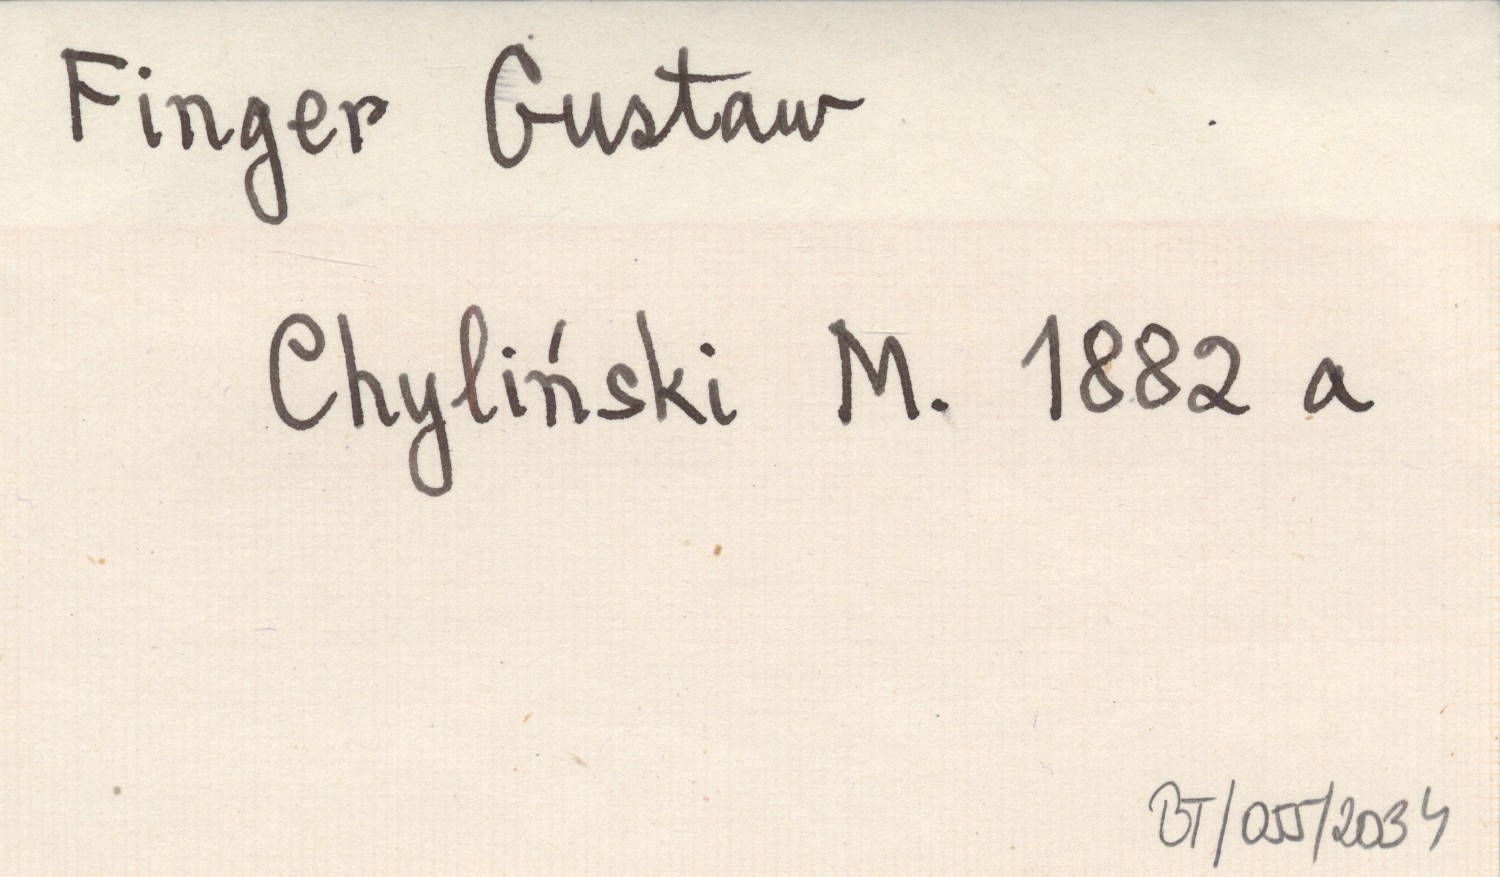 Finger Gustaw
Chyliński M. 1882 a
BT/055/2034